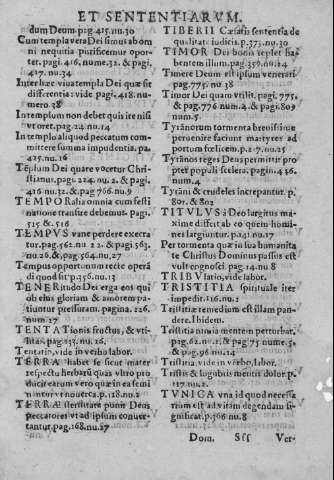 ET SENTENTIARVM.
dum Deum. pag. 415. nu. 30
Cum templa vera Dei simus ab om
ni nequitia purificemur opor-
tet. pagi. 416. nume. 32. & pagi.
417. nu. 34
Inter hæc viua templa Dei quæ sit
differentia vide pagi. 418. nu-
mero. 38
In templum non debet quis ire nisi
vt oret. pag. 24. nu. 14
In templo aliquod peccatum com-
mittere summa impudentia. pa.
415. nu. 16
Templum Dei quare vocetur Chri-
stianus, pagi. 224. nu. 2. & pagi.
416 nu. 32. & pag 766. nu. 9
TEMPORalia omnia cum festi
natione transire debemus. pagi.
515 & .516
TEMPVS vane perdere execra-
tur. pag. 562. nu. 22. & pagi 563.
nu. 26. & pag. 564. nu. 27
Tempus opportunum recte operā
di quod sit p. 156. nu. 13
TENERitudo Dei erga eos qui
ob eius gloriam & amorem pa-
tiuntur pressuram. pagina. 226.
num. 27
TENTATionis fructus, & vti-
litas. pagi. 113. nu. 26.
Tentatio, vide in verbo labor.
TERRA habet se sicut mater
respectu herbarū quas vltro pro
ducit earum vero quæ in ea semi
nantur vt nouerca. p. 128. nu. 2
TERRÆ sterilitate punit Deus
peccatores vt ad ipsum conuer-
tantur. pag. 168. nu. 27
TIBERII Cæsaris sententia de
qualitate iudicis. p. 373. nu. 30
TIMOR Dei bonis replet ha-
bentem illum. pag. 359. nu. 24
Timere Deum est ipsum venerari
pag. 775. nu 38
Timor Dei quam vtilis. pagi. 775.
& pag. 776 num. 4. & pagi. 809
num. 5.
Tyranorum tormenta breuissime
peruenire faciunt martyres ad
portum fœlicem. p. 2 7. nu. 25
Tyranos reges Deus permittit pro
pter populi scelera. pagin. 436.
num. 4
Tyrāni & crudeles increpantur. p.
801. & 802
TITVLVS a Deo largitus ma-
xime differt ab eo quem homi-
nes largiuntur. p. 141 nu. 17
Per tormenta quæ in sua humanita
te Christus Dominus passus est
vult cognosci. pag. 14. nu 8
TRIBVlatio, vide labor.
TRISTITIA spirituale iter
impedit. 116. nu. 1
Tristitiæ remedium est illam pan-
dere. Ibidem.
Tristitia nimia mentem perturbat.
pag. 62. nu. 2. & pag 75 nume. 5.
& pag. 96 nu. 24
Tristitia, vide in verbo, labor.
Tristis & lugubris mentis dolor. p.
117. nu. 2.
TVNICA vna id quod necessa-
rium est ad vitam degendam si-
gnificat. p. 366 nu. 8
Dom. Sss Ver-